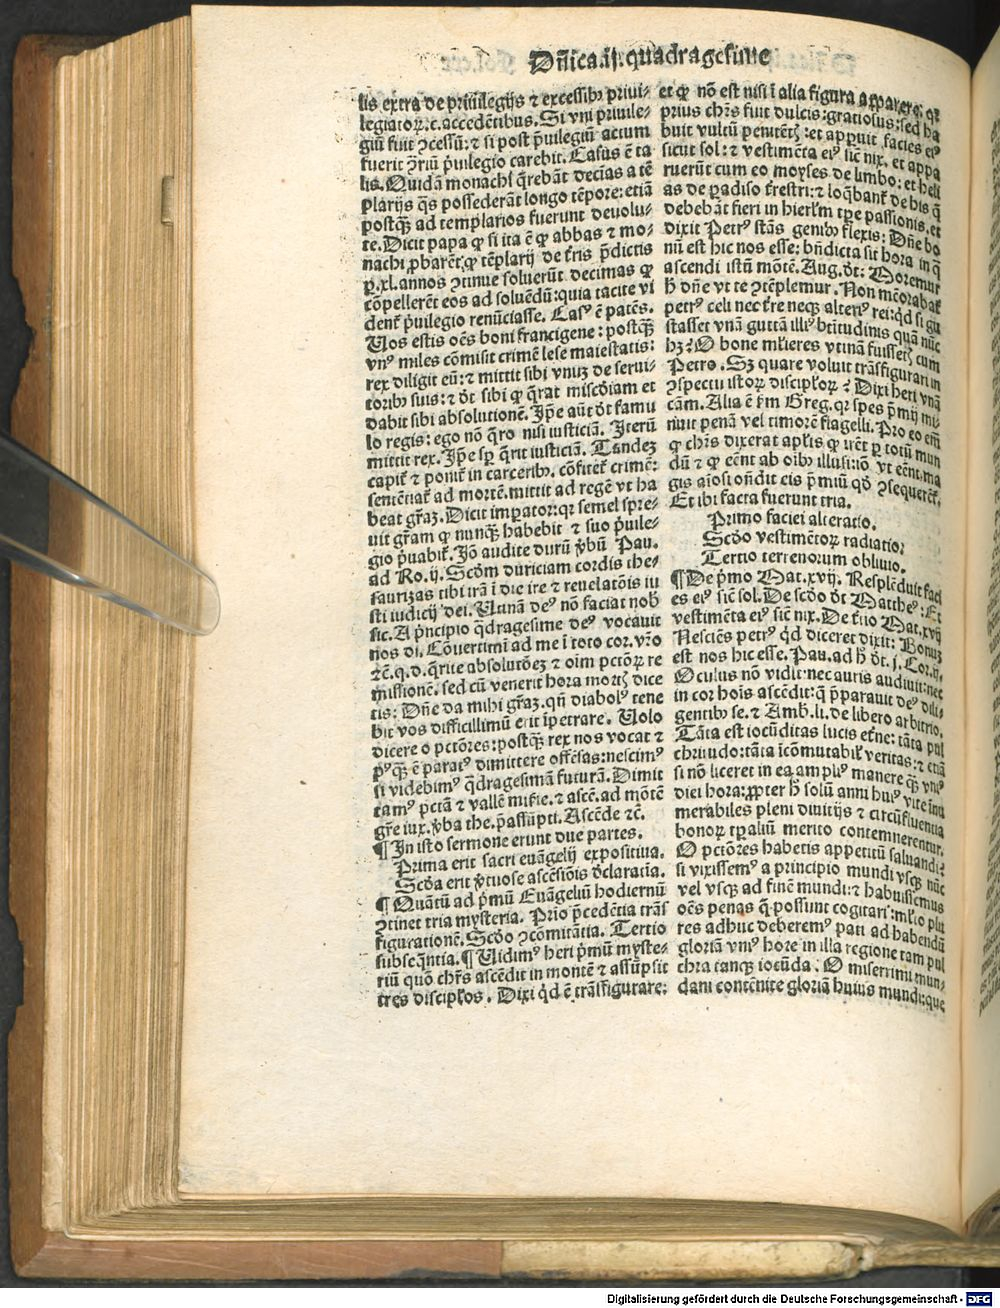 Dñica.ij.quadragesime
lis extra de priuilegijs ⁊ excessibꝰ priui-
legiatoꝝ.c.accedētibus. Si vni priuile-
giū fuit ꝯcessū: ⁊ si post p̄uilegiū actum
fuerit ꝯriū p̄uilegio carebit. Casus ē ta
lis. Quidā monachi q̄rebāt decias a tē
plarijs q̄s possederāt longo tēpore: etiā
postq̄ꝫ ad templarios fuerunt deuolu-
te. Dicit papa ꝙ si ita ē ꝙ abbas ⁊ mo-
nachi ꝓbarēt ꝙ tēplarij de t̄ris p̄dictis
ꝑ.xl.annos ꝯtinue soluerūt decimas ꝙ
cōpellerēt eos ad soluēdū: quia tacite vi
dent̄ p̄uilegio renūciasse. Casꝰ ē patēs.
Uos estis oēs boni francigene: postq̄ꝫ
vnꝰ miles cōmisit crimē lese maiestatis:
rex diligit eū: ⁊ mittit sibi vnuꝫ de serui-
toribꝰ suis: ⁊ dt̄ sibi ꝙ q̄rat miscd̄iam et
dabit sibi absolutionē. Ip̄e aūt dt̄ famu
lo regis: ego nō q̄ro nisi iusticiā. Iterū
mittit rex. Ip̄e sꝑ q̄rit iusticiā. Tandeꝫ
capit̄ ⁊ ponit̄ in carceribꝰ. cōfitet̄ crimē:
sentētiat̄ ad mortē. mittit ad regē vt ha
beat gr̄aꝫ. Dicit imꝑator: qꝛ semel spre-
uit gr̄am ꝙ nunq̄ꝫ habebit ⁊ suo p̄uile-
gio p̄uabit̄. Iō audite durū v̄bū Pau.
ad Ro.ij. Scd̄m duriciam cordis the-
saurizas tibi irā ī die ire ⁊ reuelatōis iu
sti iudicij dei. Utinā deꝰ nō faciat nob̄
sic. A p̄ncipio q̄dragesime deꝰ vocauit
nos di. Cōuertimī ad me ī toto cor. vr̄o
⁊c̄.q.d. q̄rite absolutōeꝫ ⁊ oīm pctōꝝ re
missionē. sed cū venerit hora mortꝭ dice
tis: Dn̄e da mihi gr̄aꝫ. qn̄ diabolꝰ tene
bit vos difficillimū erit īpetrare. Uolo
dicere o pctōres: postq̄ꝫ rex nos vocat ⁊
pꝰq̄ꝫ ē paratꝰ dimittere offēsas: nescimꝰ
si videbimꝰ q̄dragesimā futurā. Dimit
tamꝰ pctā ⁊ vallē mis̄ie. ⁊ ascē. ad mōtē
gr̄e iux. v̄ba the. p̄assūpti. Ascēde ⁊c̄.
¶ In isto sermone erunt due partes.
Prima erit sacri euāgelij expositiua.
Scd̄a erit v̄tuose ascēsiōis d̄claratīa.
¶ Quātū ad p̄mū Euāgeliū hodiernū
ꝯtinet tria mysteria. Prīo p̄cedētia trās
figurationē. Scd̄o ꝯcōmitātia. Tertio
subseq̄ntia. ¶ Uidimꝰ heri p̄mū myste-
riū quō chr̄s ascēdit in montē ⁊ assūpsit
tres discipl̄os. Dixi qd̄ ē trāsfigurare:
et ꝙ nō est nisi ī alia figura apparere: qꝛ
prius chr̄s fuit dulcis: gratiosus: sed ha
buit vultū penitētꝭ: et apꝑuit facies eiꝰ
sicut sol: ⁊ vestimēta eiꝰ sic̄ nix. et appa
ruerūt cum eo moyses de limbo: et heli
as de ꝑadiso t̄restri: ⁊ loq̄bant̄ de his q̄
debebāt fieri in hierl̄m tꝑe passionis. et
dixit Petrꝰ stās genibꝰ flexis: Dn̄e bo
nū est hic nos esse: bn̄dicta sit hora in q̄
ascendi istū mōtē. Aug. dt̄: Moremur
h̄ dn̄e vt te ꝯtēplemur. Non mēorabat̄
petrꝰ celi nec t̄re neqꝫ alteriꝰ rei: qd̄ si gu
stasset vnā guttā illiꝰ btītudinis quā nūc
hꝫ? O bone ml̄ieres vtinā fuissetꝭ cum
Petro. Sꝫ quare voluit trāsfigurari in
ꝯspectu istoꝝ discipl̄oꝝ? Dixi heri vnā
cām. Alia ē fm̄ Greg. qꝛ spes p̄mij mi-
nuit penā vel timorē flagelli. Pro eo em̄
ꝙ chr̄s dixerat apl̄is ꝙ irēt ꝑ totū mun
dū ⁊ ꝙ eēnt ab oībꝰ illusi: iō vt eēnt ma
gis aīosi on̄dit eis p̄miū qd̄ ꝯsequerēt̄.
Et ibi facta fuerunt tria.
Primo faciei alteratio.
Scd̄o vestimētoꝝ radiatio:
Tertio terrenorum obliuio.
¶ De p̄mo Mat.xvij. Resplēduit faci
es eiꝰ sic̄ sol. De scd̄o dt̄ Mattheꝰ: Et
vestimēta eiꝰ sic̄ nix. De t̄tio Mat.xvij
Nesciēs petrꝰ qd̄ diceret dixit: Bonuꝫ
est nos hic esse. Pau. ad h̄ dt̄. j. Cor.ij.
Oculus nō vidit: nec auris audiuit: nec
in cor hoīs ascēdit: q̄ p̄parauit deꝰ dili-
gentibꝰ se. ⁊ Amb. li. de libero arbitrio.
Tāta est iocūditas lucis et̄ne: tāta pul
chritudo: tāta īcōmutabil̄ veritas: ⁊ etiā
si nō liceret in ea ampliꝰ manere q̄ꝫ vniꝰ
diei hora: ꝓpter h̄ solū anni huiꝰ vite īnu
merabiles pleni diuitijs ⁊ circūfluentia
bonoꝝ tꝑaliū merito contemnerentur.
O pctōres habetis appetitū saluandi?
si vixissemꝰ a principio mundi vsqꝫ nūc
vel vsqꝫ ad finē mundi: ⁊ habuissemus
oēs penas q̄ possunt cogitari: ml̄to plu
res adhuc deberemꝰ pati ad habendū
gloriā vniꝰ hore in illa regione tam pul
chra tanqꝫ iocūda. O miserrimi mun-
dani contēnite gloriā huius mundi: que
Digitalisierung gefördert durch die Deutsche Forschungsgemeinschaft - DFG